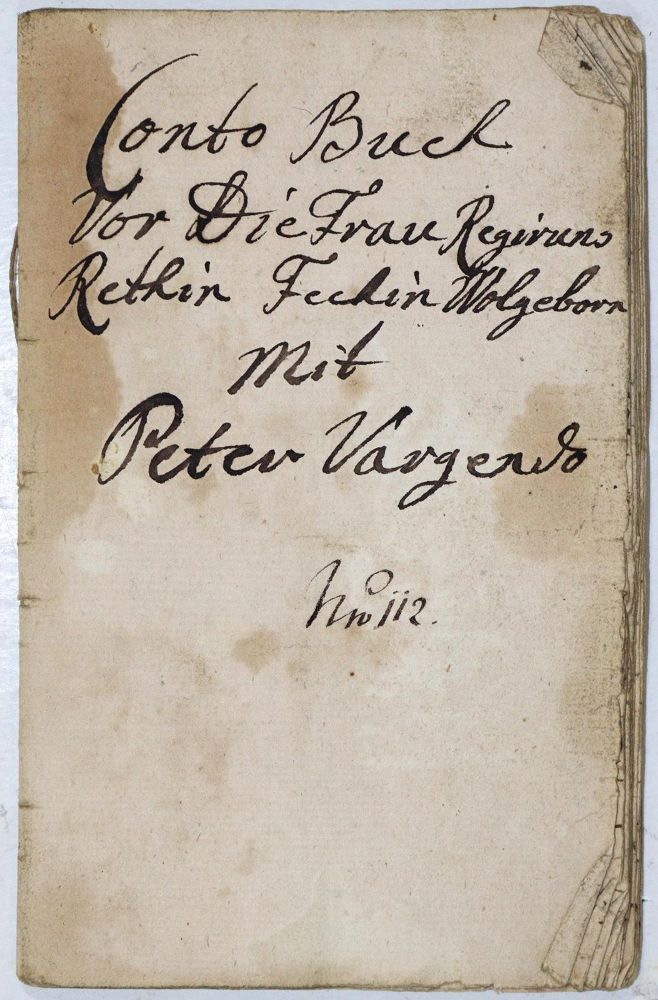 Conto Buch
Vor Die Frau Regiruns
Rethin Fechin Wolgeborn
Mit
Peter Vargends
Nro 112.